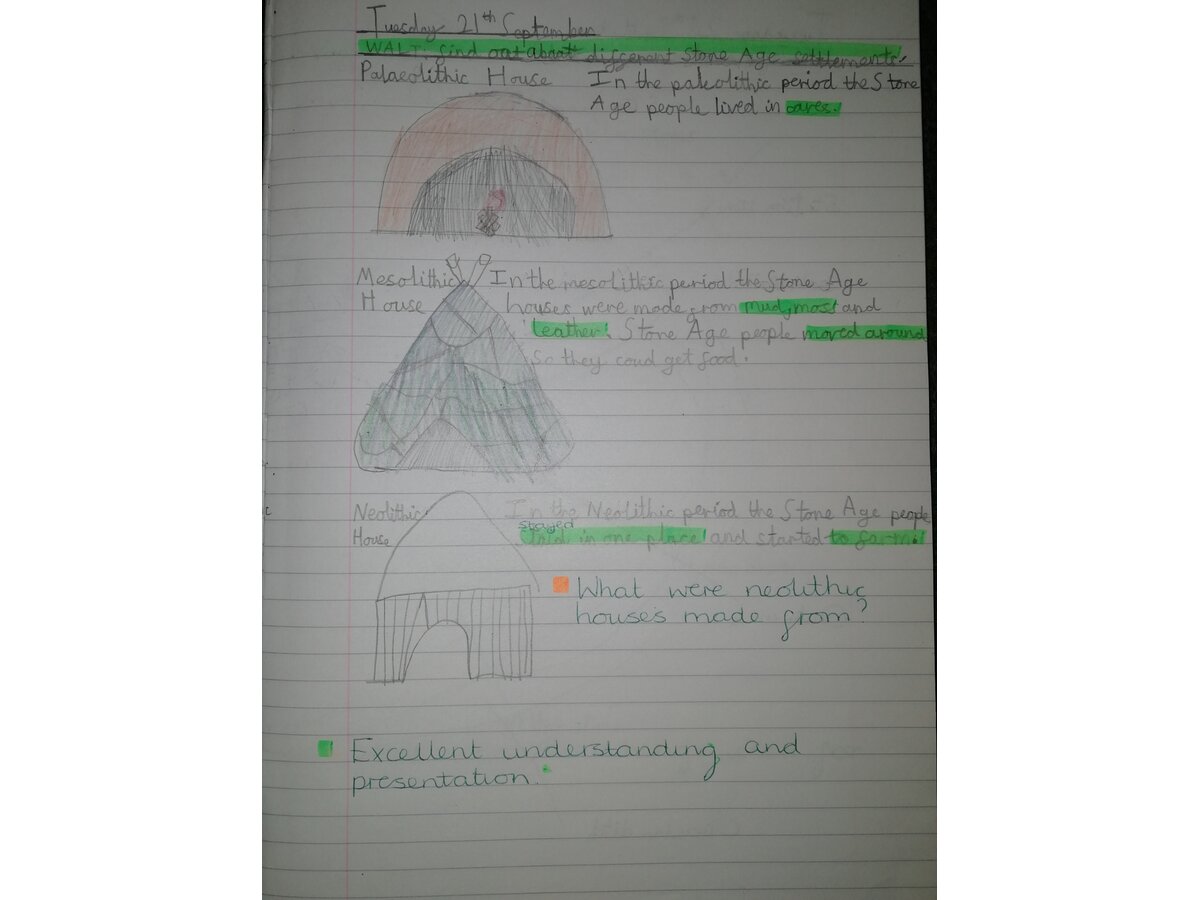 Tuesday 21th September
WALT: find out about different Stone Age settlements.
Palaeolithic House
In the paleolithic period the Stone
Age people lived in caves.
Mesolithic
House
In the mesolithic period the Stone Age
houses were made from mud, most and
leather. Stone Age people moved around
so they coud get food.
Neolithic
House
In the Neolithic period the Stone Age people
stayed
in one place and started to farm.
What were neolithic
houses made from?
Excellent understanding and
presentation.